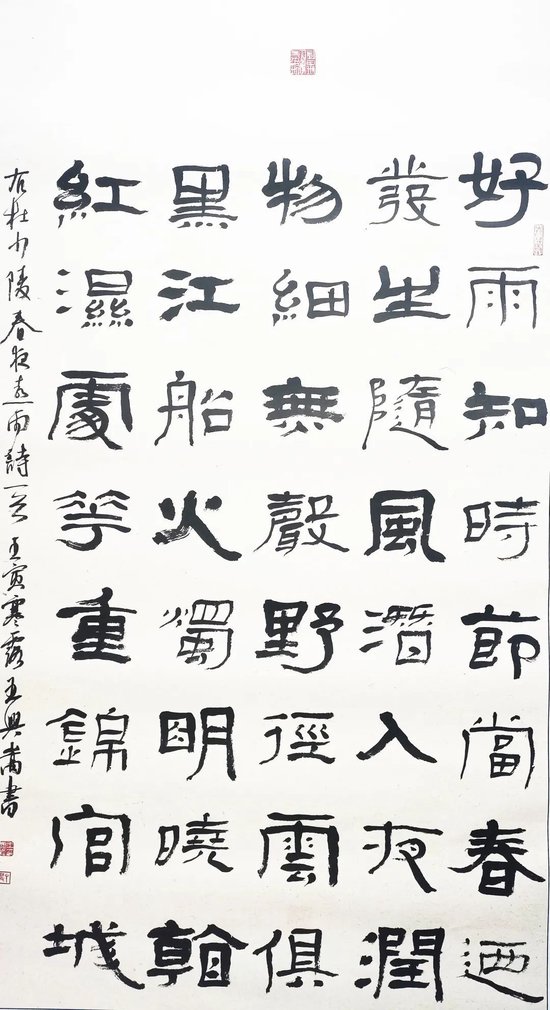 好雨知時節當春迺
發生隨風潛入夜潤
物細無聲野徑雲俱
黑江船火獨明曉看
紅濕處花重錦官城
右杜少陵春夜喜雨詩一首 壬寅寒露王興書